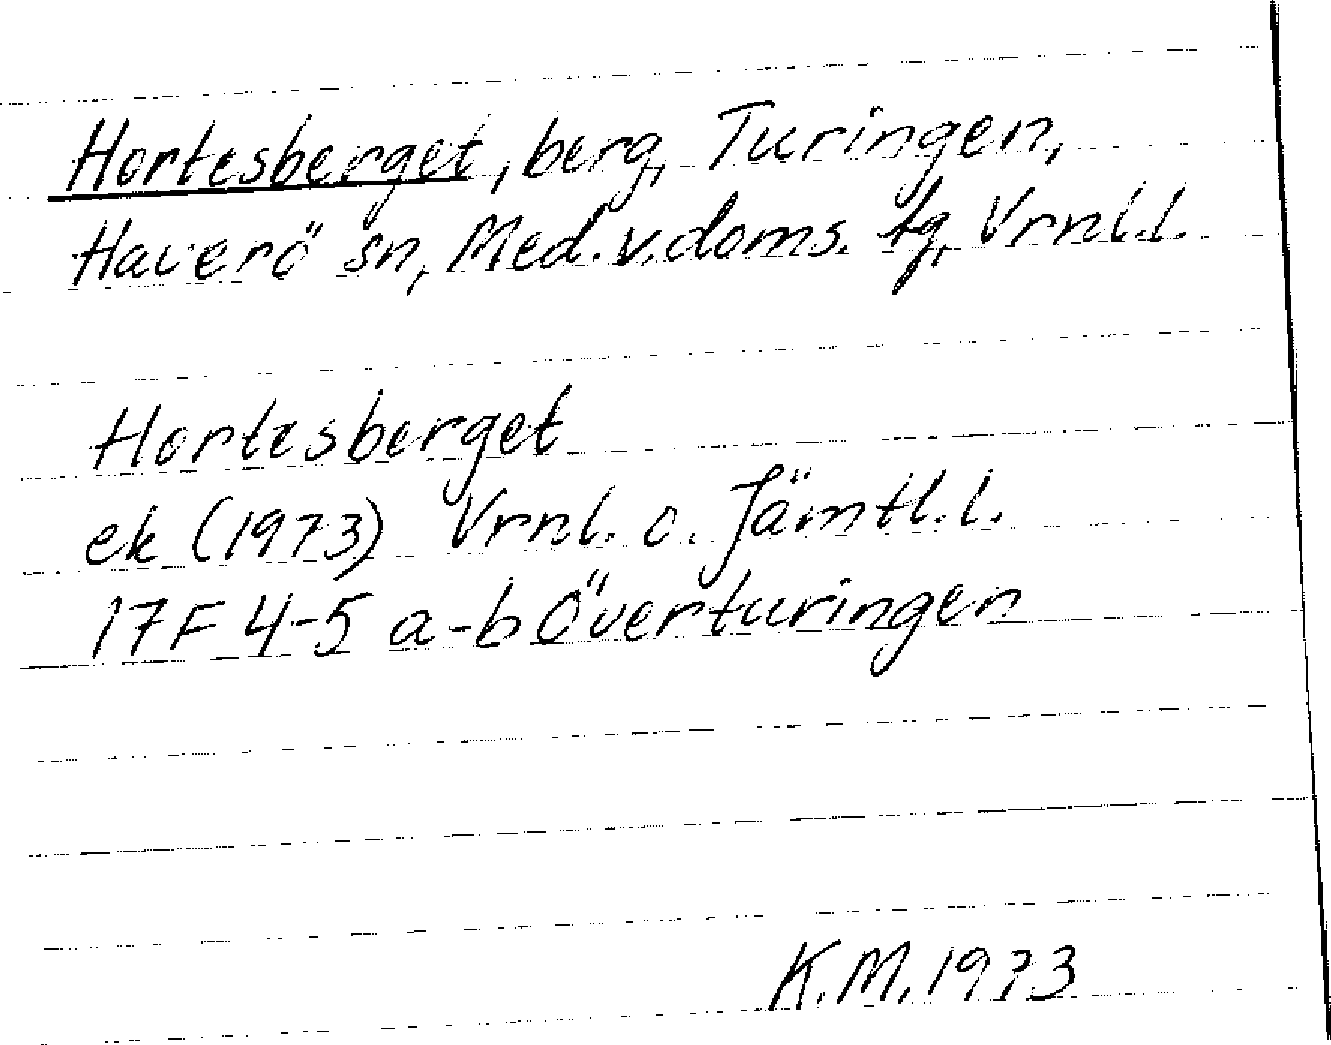 Hortesberget, berg, Turingen,
Haverö sn, Med. v. doms. tg, Vrnl.l.
Hortesberget
ek (1973) Vrnl. o. Jämtl.l.
17F 4-5 a-b Överturingen
K.M. 1973